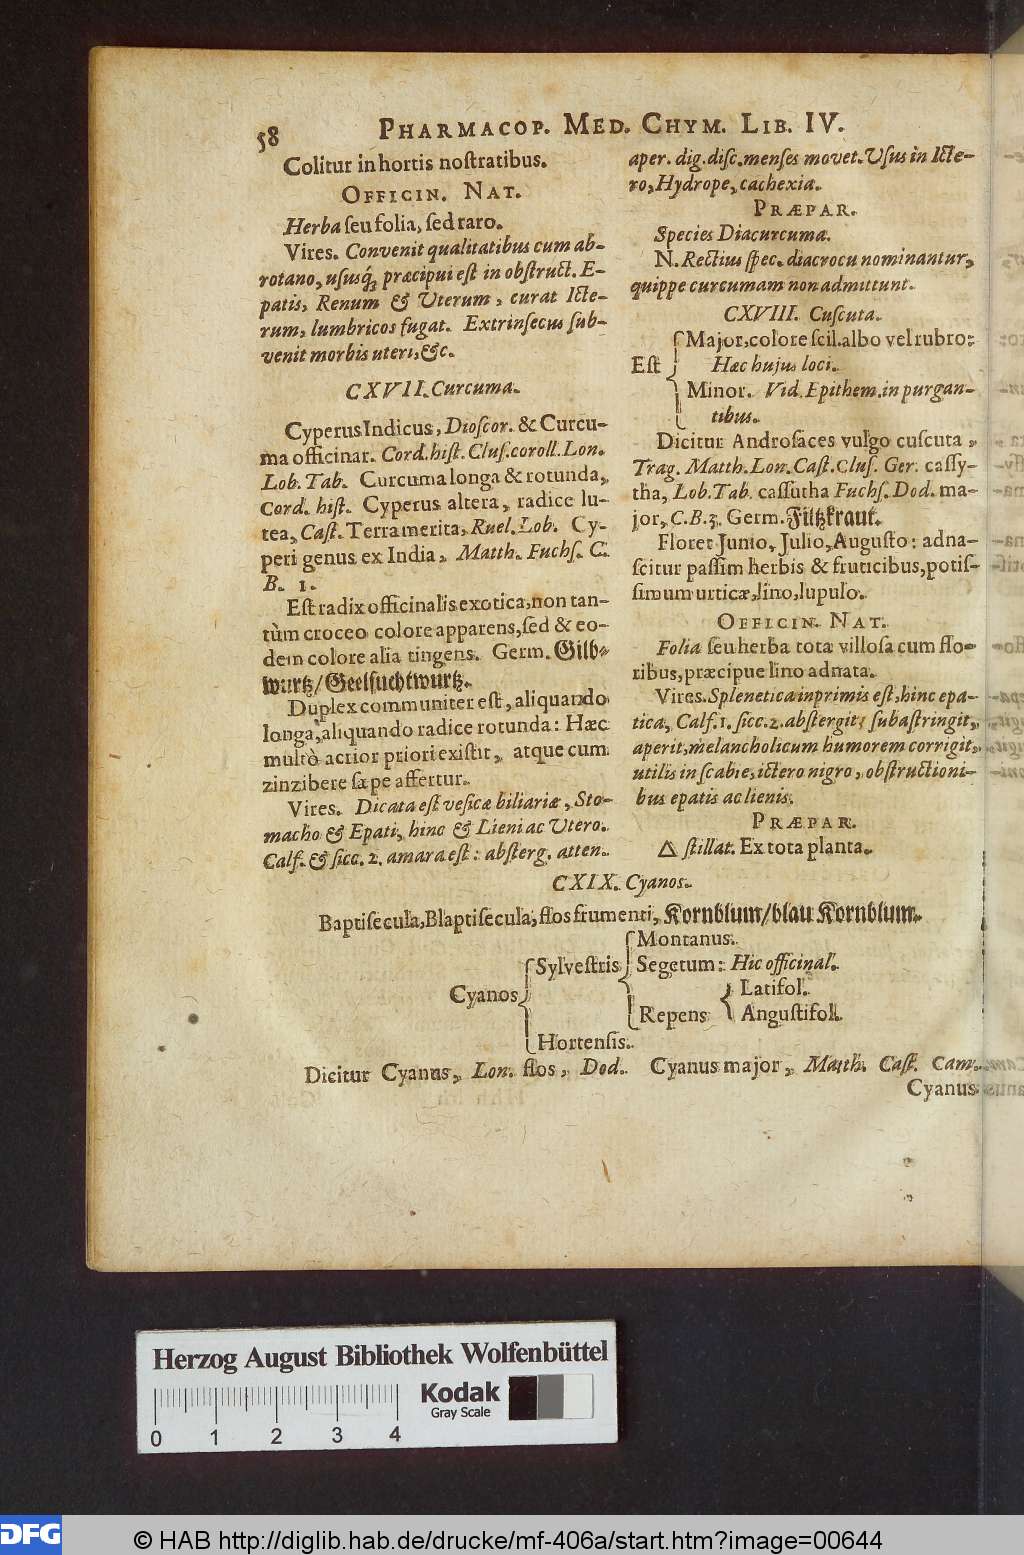 58
PHARMACOP. MED. CHYM. LIB. IV.
Colitur in hortis nostratibus.
OFFICIN. NAT.
Herba seu folia, sed raro.
Vires. Convenit qualitatibus cum ab-
rotano, ususq́; præcipui est in obstruct. E-
patis, Renum & Uterum, curat Icte-
rum, lumbricos fugat. Extrinsecus sub-
venit morbis uteri, &c.
CXVII. Curcuma.
Cyperus Indicus, Dioscor. & Curcu-
ma officinar. Cord. hist. Clus. coroll. Lon.
Lob. Tab. Curcuma longa & rotunda,
Cord. hist. Cyperus altera, radice lu-
tea, Cast. Terra merita, Ruel. Lob. Cy-
peri genus ex India, Matth. Fuchs. C.
B. 1.
Est radix officinalis exotica, non tan-
tùm croceo colore apparens, sed & eo-
dem colore alia tingens. Germ. Gilb-
wurtz/ Geelsuchtwurtz.
Duplex communiter est, aliquando
longa, aliquando radice rotunda: Hæc
multò acrior priori existit, atque cum
zinzibere sæpe affertur.
Vires. Dicata est vesicæ biliariæ, Sto-
macho & Epati, hinc & Lieni ac Utero.
Calf. & sicc. 2. amara est: absterg. atten.
aper. dig. disc. menses movet. Usus in Icte-
ro, Hydrope, cachexia.
PRÆPAR.
Species Diacurcuma.
N. Rectius spec. diacrocu nominantur,
quippe curcumam non admittunt.
CXVIII. Cuscuta.
Major, colore scil. albo vel rubro:
Est Hæc hujus loci.
Minor. Vid. Epithem. in purgan-
tibus.
Dicitur Androsaces vulgo cuscuta,
Trag. Matth. Lon. Cast. Clus. Ger. cassy-
tha, Lob. Tab. cassutha Fuchs. Dod. ma-
jor, C. B. 3. Germ. Filtzkraut.
Floret Junio, Julio, Augusto: adna-
scitur passim herbis & fruticibus, potis-
simum urticæ, lino, lupulo.
OFFICIN. NAT.
Folia seu herba tota villosa cum flo-
ribus, præcipue lino adnata.
Vires. Splenetica inprimis est, hinc epa-
tica, Calf. 1. sicc. 2. abstergit, subastringit,
aperit, melancholicum humorem corrigit,
utilis in scabie, ictero nigro, obstructioni-
bus epatis ac lienis.
PRÆPAR.
△ stillat. Ex tota planta.
CXIX. Cyanos.
Baptisecula, Blaptisecula, flos frumenti, Kornblum/ blau Kornblum.
Montanus.
Sylvestris Segetum: Hic officinal.
Cyanos Latifol.
Repens Angustifol.
Hortensis.
Dicitur Cyanus, Lon. flos, Dod. Cyanus major, Matth. Cast. Cam.
Cyanus
Herzog August Bibliothek Wolfenbüttel
Kodak
Gray Scale
0 1 2 3 4
DFG
© HAB http://diglib.hab.de/drucke/mf-406a/start.htm?image=00644